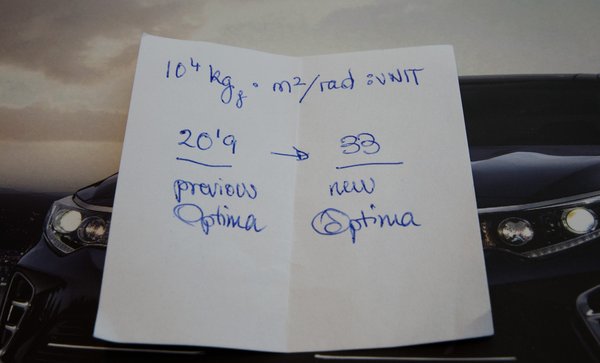 10⁴ kgf · m²/rad :UNIT
20'9 → 33
previous new
Optima Optima